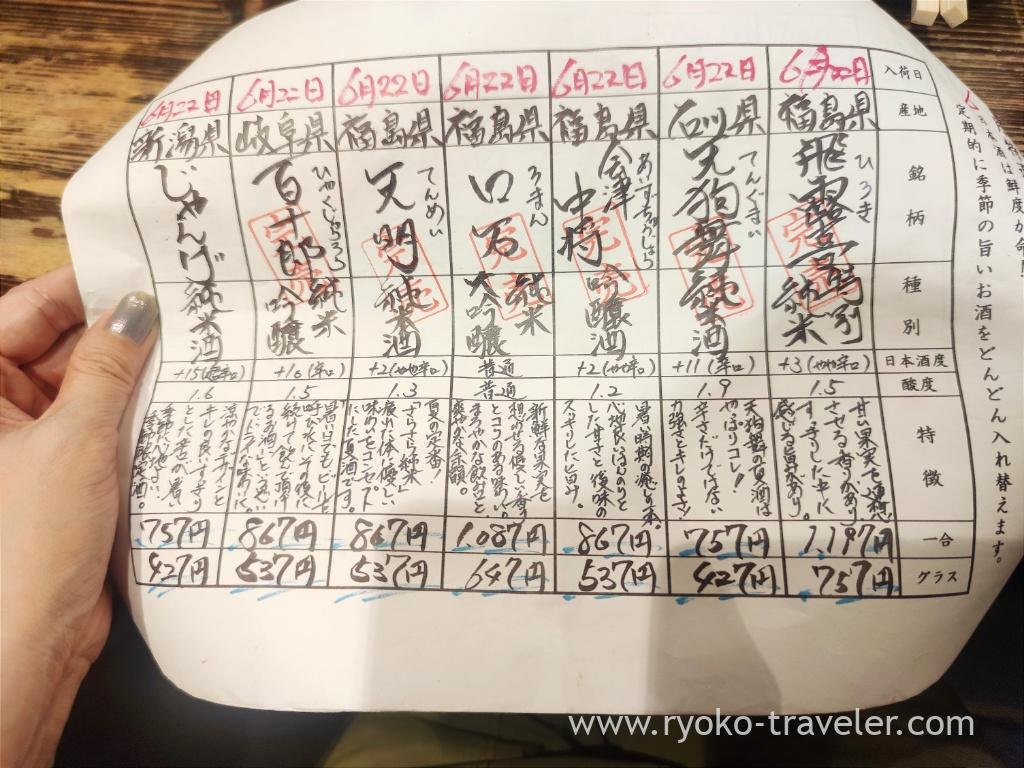 定期的に季節の旨いお酒をどんどん入れ替えます。
入荷日
産地
銘柄
種別
日本酒度
酸度
特徴
一合
グラス
6月22日
福島県
飛露喜
ひろき
特別
純米
完売
+3(やや辛口)
1.5
甘い果実を連想
させる香りがあり
すっきりした中に
感じる旨みあり。
1,197円
757円
6月22日
石川県
天狗舞
てんぐまい
純米酒
完売
+11(辛口)
1.9
天狗舞の夏酒は
やっぱりコレ!
辛さだけではない
力強さとキレのよさ!
757円
427円
6月22日
福島県
会津
中将
吟醸酒
完売
+2(やや辛口)
1.2
暑い時期の癒しの1本。
心地良いほんのりと
した甘さと後味の
スッキリした旨み。
867円
537円
6月22日
福島県
ロ万
ろまん
純米
大吟醸
完売
普通
普通
新鮮な果実を
想わせる優しい香り
とコクのある味わい。
まろやかな飲み口と
爽やかな余韻。
1,087円
647円
6月22日
福島県
天明
てんめい
純米酒
完売
+2(やや辛口)
1.3
夏の定番!
さらさら純米
疲れた体へ優しい
味わいをコンセプト
にした夏酒です。
867円
537円
6月22日
岐阜県
百十郎
ひゃくじゅうろう
純米
吟醸
完売
+16(辛口)
1.5
暑い日でもビールを
呼び水に、その後に
続けて飲んで頂け
るお酒にという想い
867円
537円
6月22日
新潟県
じゃんげ
純米酒
1.6
涼やかなデザインと
キレの良いすっきり
とした辛さが、暑い
757円
427円